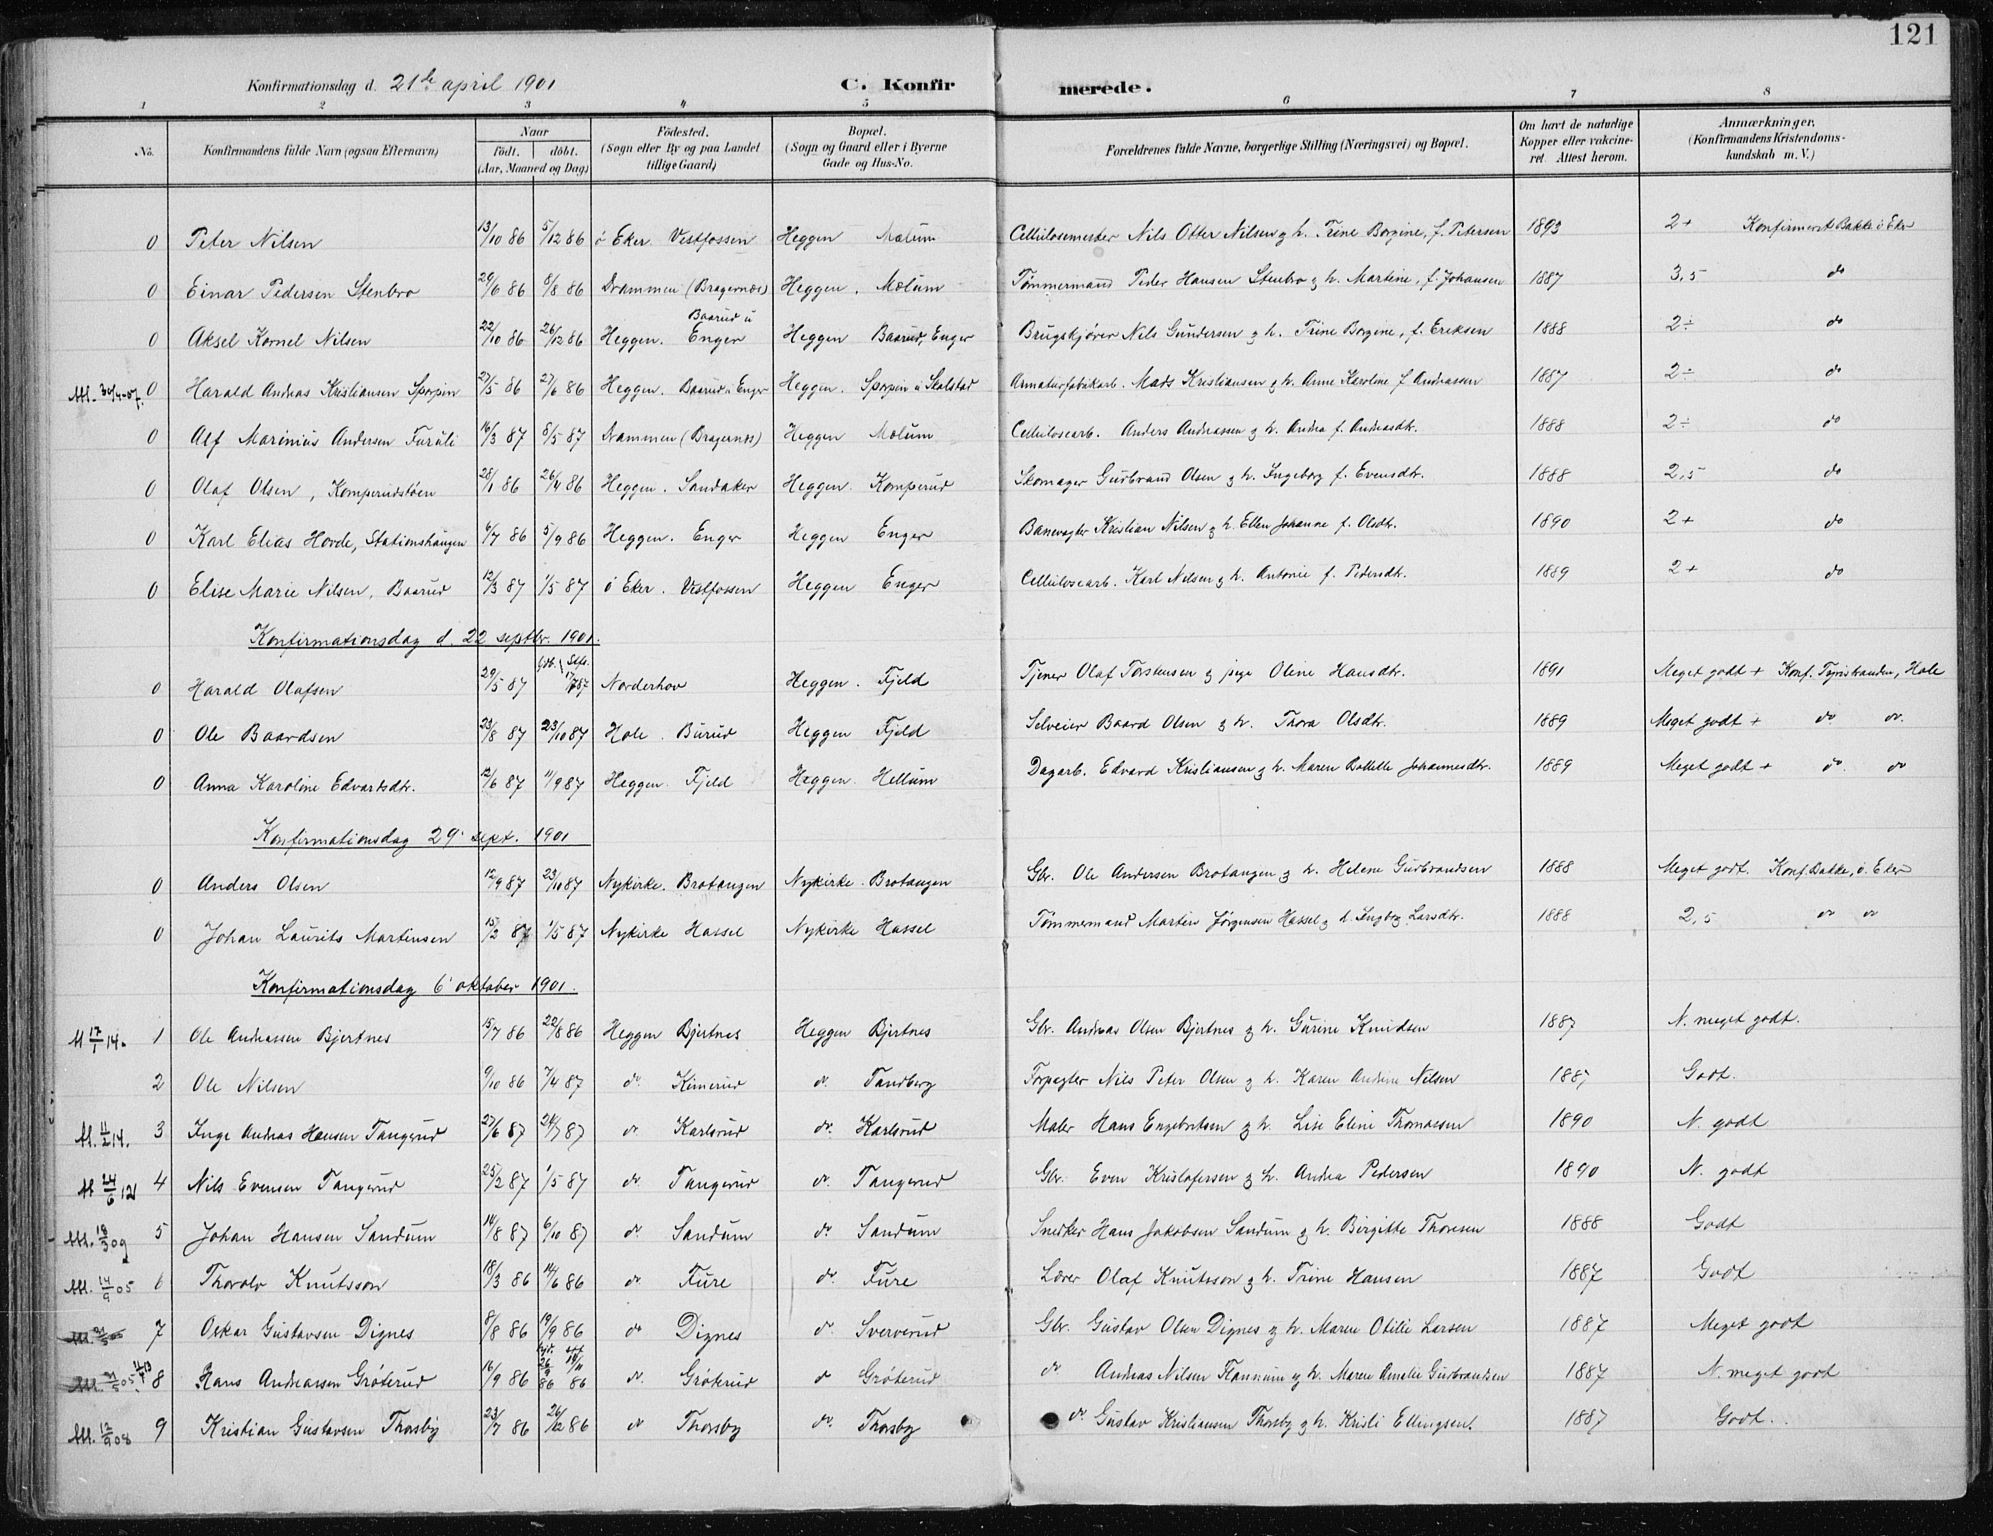 121
Konfirmationsdag d. 21de april 1901 C. Konfirmerede.
1 2 3 4 5 6 7 8
No. Konfirmandens fulde Navn (ogsaa Efternavn) Naar født. døbt. (Aar, Maaned og Dag) Fødested. (Sogn eller By og paa Landet tillige Gaard) Bopæl. (Sogn og Gaard eller i Byerne Gade og Hus-No. Forældrenes fulde Navne, borgerlige Stilling (Næringsvei) og Bopæl. Om havt de naturlige Kopper eller vakcineret Attest herom. Anmærkninger, (Konfirmandens Kristendomskundskab m. V.)
0 Peter Nilsen 13/10 86 5/12 86 ö Eker Vestfossen Heggen Mælum Cellulosemester Nils Otter Nilsen og h. Trine Borgine, f. Petersen 1893 2+ Konfirmert Bakke ö Eker
0 Einar Pedersen Stenbro 29/6 86 8/8 86 Drammen (Bragernæs) Heggen. Mælum Tømmermand Peder Hansen Stenbro og h. Martine, f. Johansen 1887 3,5 do
0 Aksel Kornel Nilsen 22/10 86 26/12 86 Heggen. Baarud u Enger Heggen Baarud, Enger Brugskjører Nils Gundersen og h. Trine Borgine, f. Eriksen 1888 2÷ do
M. 30/4-07. 0 Harald Andreas Kristiansen Sporpin 27/5 86 27/6 86 Heggen. Baarud u Enger Heggen. Sporpin u Skalstad Armaturfabrikarb. Mads Kristiansen og h. Anne Karoline f Andreassen 1887 2÷ do
0 Alf Marinius Andersen Furuli 16/3 87 8/5 87 Drammen (Bragernæs) Heggen Mælum Cellulosearb. Anders Andreassen og h. Andrea f. Andreasdtr. 1888 2÷ do
0 Olaf Olsen, Komperudstøen 28/1 86 26/4 86 Heggen. Sandaker Heggen. Komperud Skomager Gudbrand Olsen og h. Ingeborg f. Evensdtr. 1888 2,5 do
0 Karl Elias Hovde, Stationshaugen 6/7 86 5/9 86 Heggen. Enger Heggen Enger Banevogter Kristian Nilsen og h. Ellen Johanne f. Olsdtr. 1890 2+ do
0 Elise Marie Nilsen, Baarud 12/3 87 1/5 87 ö Eker. Vestfossen Heggen Enger Cellulosearb. Karl Nilsen og h. Antonie f. Pedersdtr. 1889 2+ do
Konfirmationsdag d. 22 septbr. 1901.
0 Harald Olafsen 29/5 87 Norderhov Heggen. Fjeld Tjener Olaf Torstensen og pige Oline Hansdtr. 1891 Meget godt + Konf. Tyristranden, Hole
0 Ole Baardsen 23/8 87 23/10 87 Hole. Burud Heggen Fjeld Selveier Baard Olsen og h. Thora Olsdtr. 1889 Meget godt + do do.
0 Anna Karoline Edvartsdtr. 12/6 87 11/9 87 Heggen. Fjeld Heggen. Hellum Dagarb. Edvard Kristiansen og h. Maren Bollette Johannesdtr. 1889 Meget godt + do. do
Konfirmationsdag 29' sept. 1901
0 Anders Olsen 12/9 87 23/10 87 Nykirke. Brotangen Nykirke. Brotangen Gbr. Ole Andersen Brotangen og h. Helene Gudbrandsen 1888 Meget godt. Konf. Bakke, ö. Eker
0 Johan Laurits Martinsen 15/2 87 1/5 87 Nykirke Hassel Nykirke Hassel Tømmermand Martin Jørgensen Hassel og h. Ingbg Larsdtr. 1888 2,5 do do
Konfirmationsdag 6' oktober 1901.
M 17/1 14. 1 Ole Andreassen Bjertnes 15/7 86 22/8 86 Heggen Bjertnes Heggen Bjertnes Gbr. Andreas Olsen Bjertnes og h. Gurine Knudsen 1887 N. meget godt.
2 Ole Nilsen 9/10 86 7/4 87 do Kimerud do. Tandberg Forpagter Nils Peter Olsen og h. Karen Andrine Nilsen 1887 Godt.
M. 11/2 14. 3 Inge Andreas Hansen Tangerud 27/6 87 24/7 87 do Karlsrud do. Karlsrud Maler Hans Engebretsen og h. Lise Eline Thomassen 1890 N. godt
M 24/6 121 4 Nils Evensen Tangerud 25/2 87 1/5 87 do Tangerud do. Tangerud Gbr. Even Kristofersen og h. Andrea Pedersen 1890 N. godt
M. 18/3 09 5 Johan Hansen Sandum 14/8 87 6/10 87 do Sandum do. Sandum Snedker Hans Jakobsen Sandum og h. Birgitte Thoresen 1888 Godt
M. 14/9 05 6 Thorolv Knutsson 18/3 86 14/6 86 do Fure do. Fure Lærer Olaf Knutsson og h. Trine Hansen 1887 Godt
7 Oskar Gustavsen Dignes 8/8 86 19/9 86 do Dignes do. Sververud Gbr. Gustav Olsen Dignes og h. Maren Otilie Larsen 1887 Meget godt
8 Hans Andreassen Grøterud 16/9 86 26/9 86 14/11 86 do. Grøterud do Grøterud do Andreas Nilsen Flannum og h. Maren Amalie Gudbrandsen 1887 N. meget godt
M. 12/9 08 9 Kristian Gustavsen Thorsby 23/7 86 26/12 86 do Thorsby do. Thorsby do. Gustav Kristiansen Thorsby og h. Kristi Ellingsen. 1887 Godt.